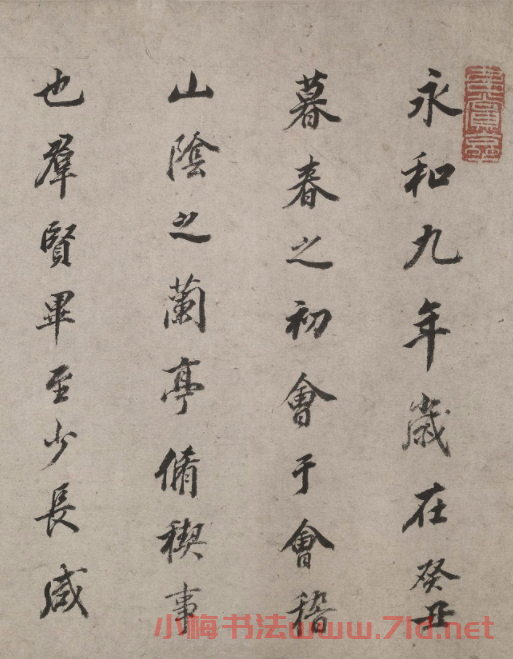 永和九年歲在癸丑
暮春之初會于會稽
山陰之蘭亭脩稧事
也羣賢畢至少長咸
小梅书法www.7ld.net